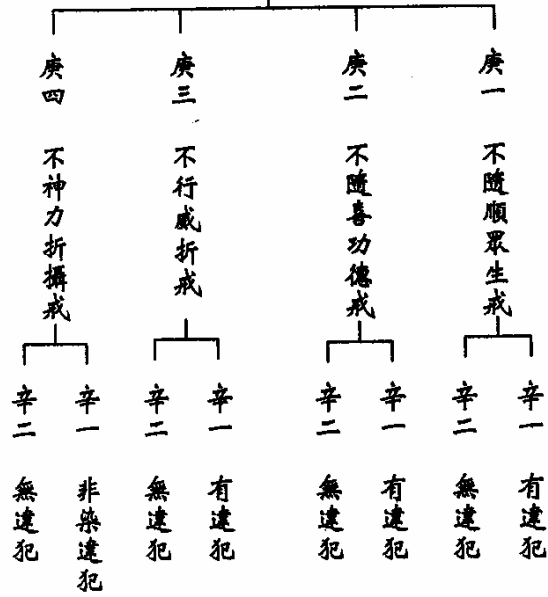 庚一 不隨順眾生戒
辛一 有違犯
辛二 無違犯
庚二 不隨喜功德戒
辛一 有違犯
辛二 無違犯
庚三 不行威折戒
辛一 有違犯
辛二 無違犯
庚四 不神力折攝戒
辛一 非染違犯
辛二 無違犯